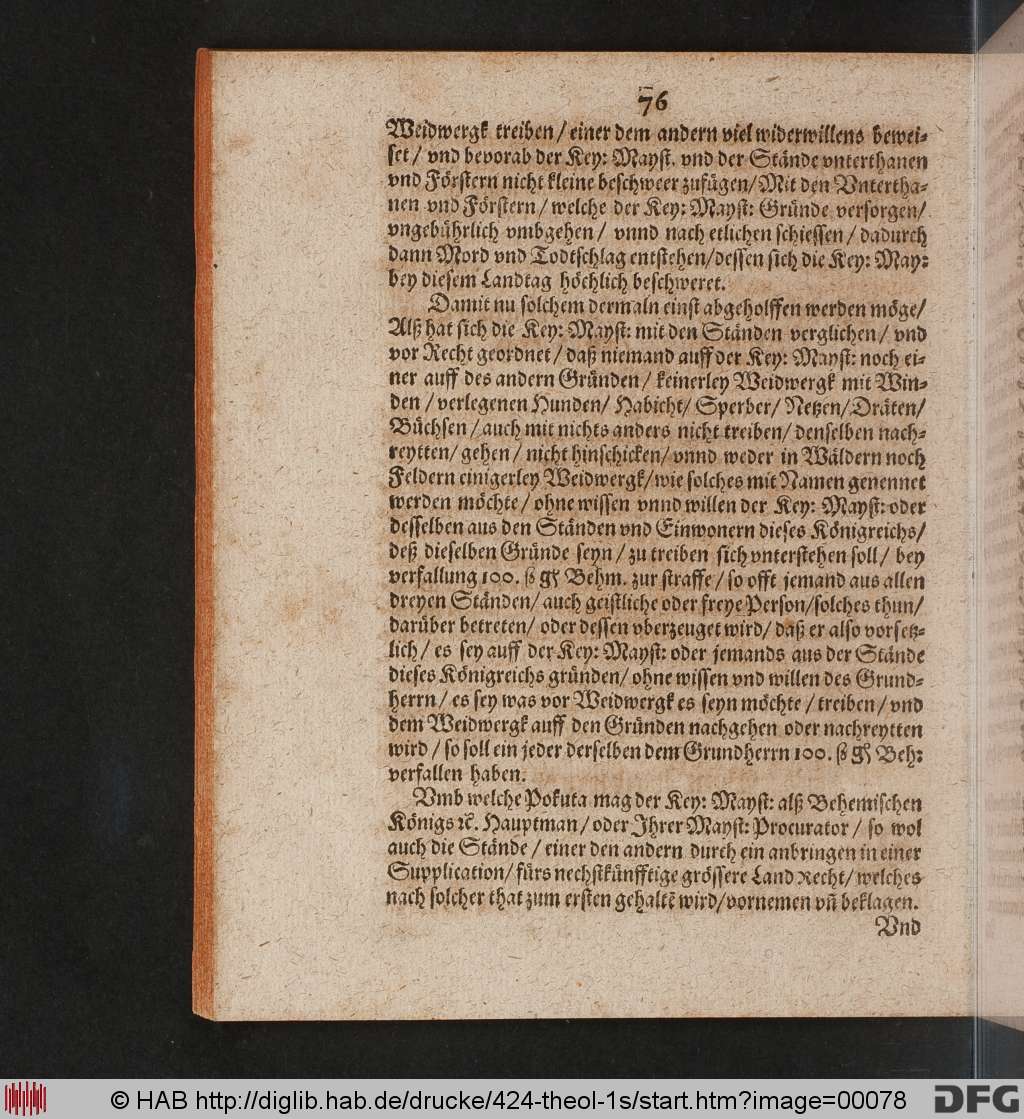 76
Weidwergk treiben / einer dem andern viel widerwillens bewei-
set / vnd bevorab der Key: Mayst. vnd der Stände vnterthanen
vnd Förstern nicht kleine beschweer zufügen / Mit den Vntertha-
nen vnd Förstern / welche der Key: Mayst: Gründe versorgen /
vngebührlich vmbgehen / vnnd nach etlichen schiessen / dadurch
dann Mord vnd Todtschlag entstehen / dessen sich die Key: May:
bey diesem Landtag höchlich beschweret.
Damit nu solchem dermaln einst abgeholffen werden möge /
Alß hat sich die Key: Mayst: mit den Ständen verglichen / vnd
vor Recht geordnet / daß niemand auff der Key: Mayst: noch ei-
ner auff des andern Gründen / keinerley Weidwergk mit Win-
den / verlegenen Hunden / Habicht / Sperber / Netzen / Dräten /
Büchsen / auch mit nichts anders nicht treiben / denselben nach-
reytten / gehen / nicht hinschicken / vnnd weder in Wäldern noch
Feldern einigerley Weidwergk / wie solches mit Namen genennet
werden möchte / ohne wissen vnnd willen der Key: Mayst: oder
desselben aus den Ständen vnd Einwonern dieses Königreichs /
deß dieselben Gründe seyn / zu treiben sich vnterstehen soll / bey
verfallung 100. ß gl Behm. zur straffe / so offt jemand aus allen
dreyen Ständen / auch geistliche oder freye Person / solches thun /
darüber betreten / oder dessen vberzeuget wird / daß er also vorsetz-
lich / es sey auff der Key: Mayst: oder jemands aus der Stände
dieses Königreichs gründen / ohne wissen vnd willen des Grund-
herrn / es sey was vor Weidwergk es seyn möchte / treiben / vnd
dem Weidwergk auff den Gründen nachgehen oder nachreytten
wird / so soll ein jeder derselben dem Grundherrn 100. ß gl Beh:
verfallen haben.
Vmb welche Pokuta mag der Key: Mayst: alß Behemischen
Königs ꝛc. Hauptman / oder Jhrer Mayst: Procurator / so wol
auch die Stände / einer den andern durch ein anbringen in einer
Supplication / fürs nechstkünfftige grössere Land Recht / welches
nach solcher that zum ersten gehaltē wird / vornemen vn̄ beklagen.
Vnd
© HAB http://diglib.hab.de/drucke/424-theol-1s/start.htm?image=00078
DFG